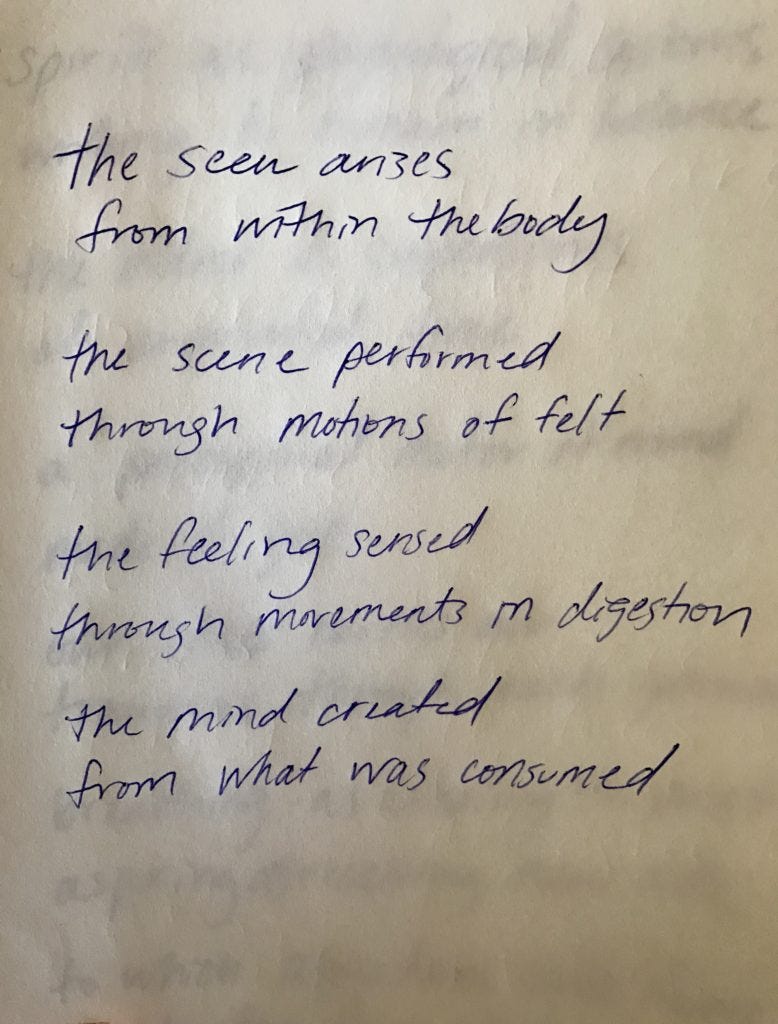 the seen arises
from within the body
the scene performed
through motions of felt
the feeling sensed
through movements in digestion
the mind created
from what was consumed